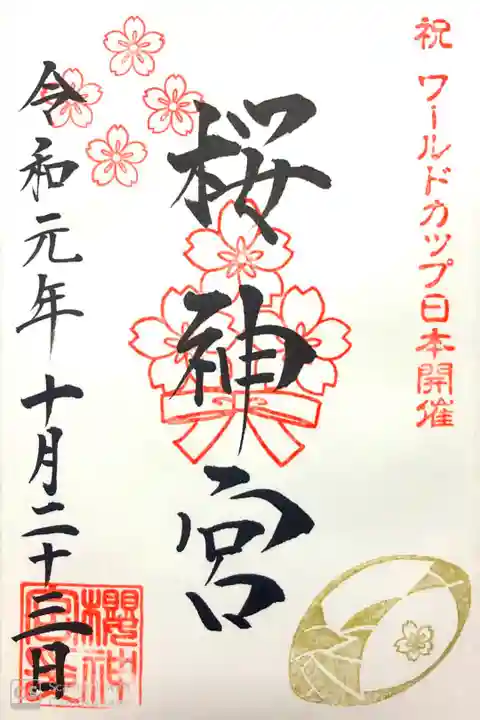 祝 ワールドカップ日本開催
桜神宮
令和元年十月二十三日